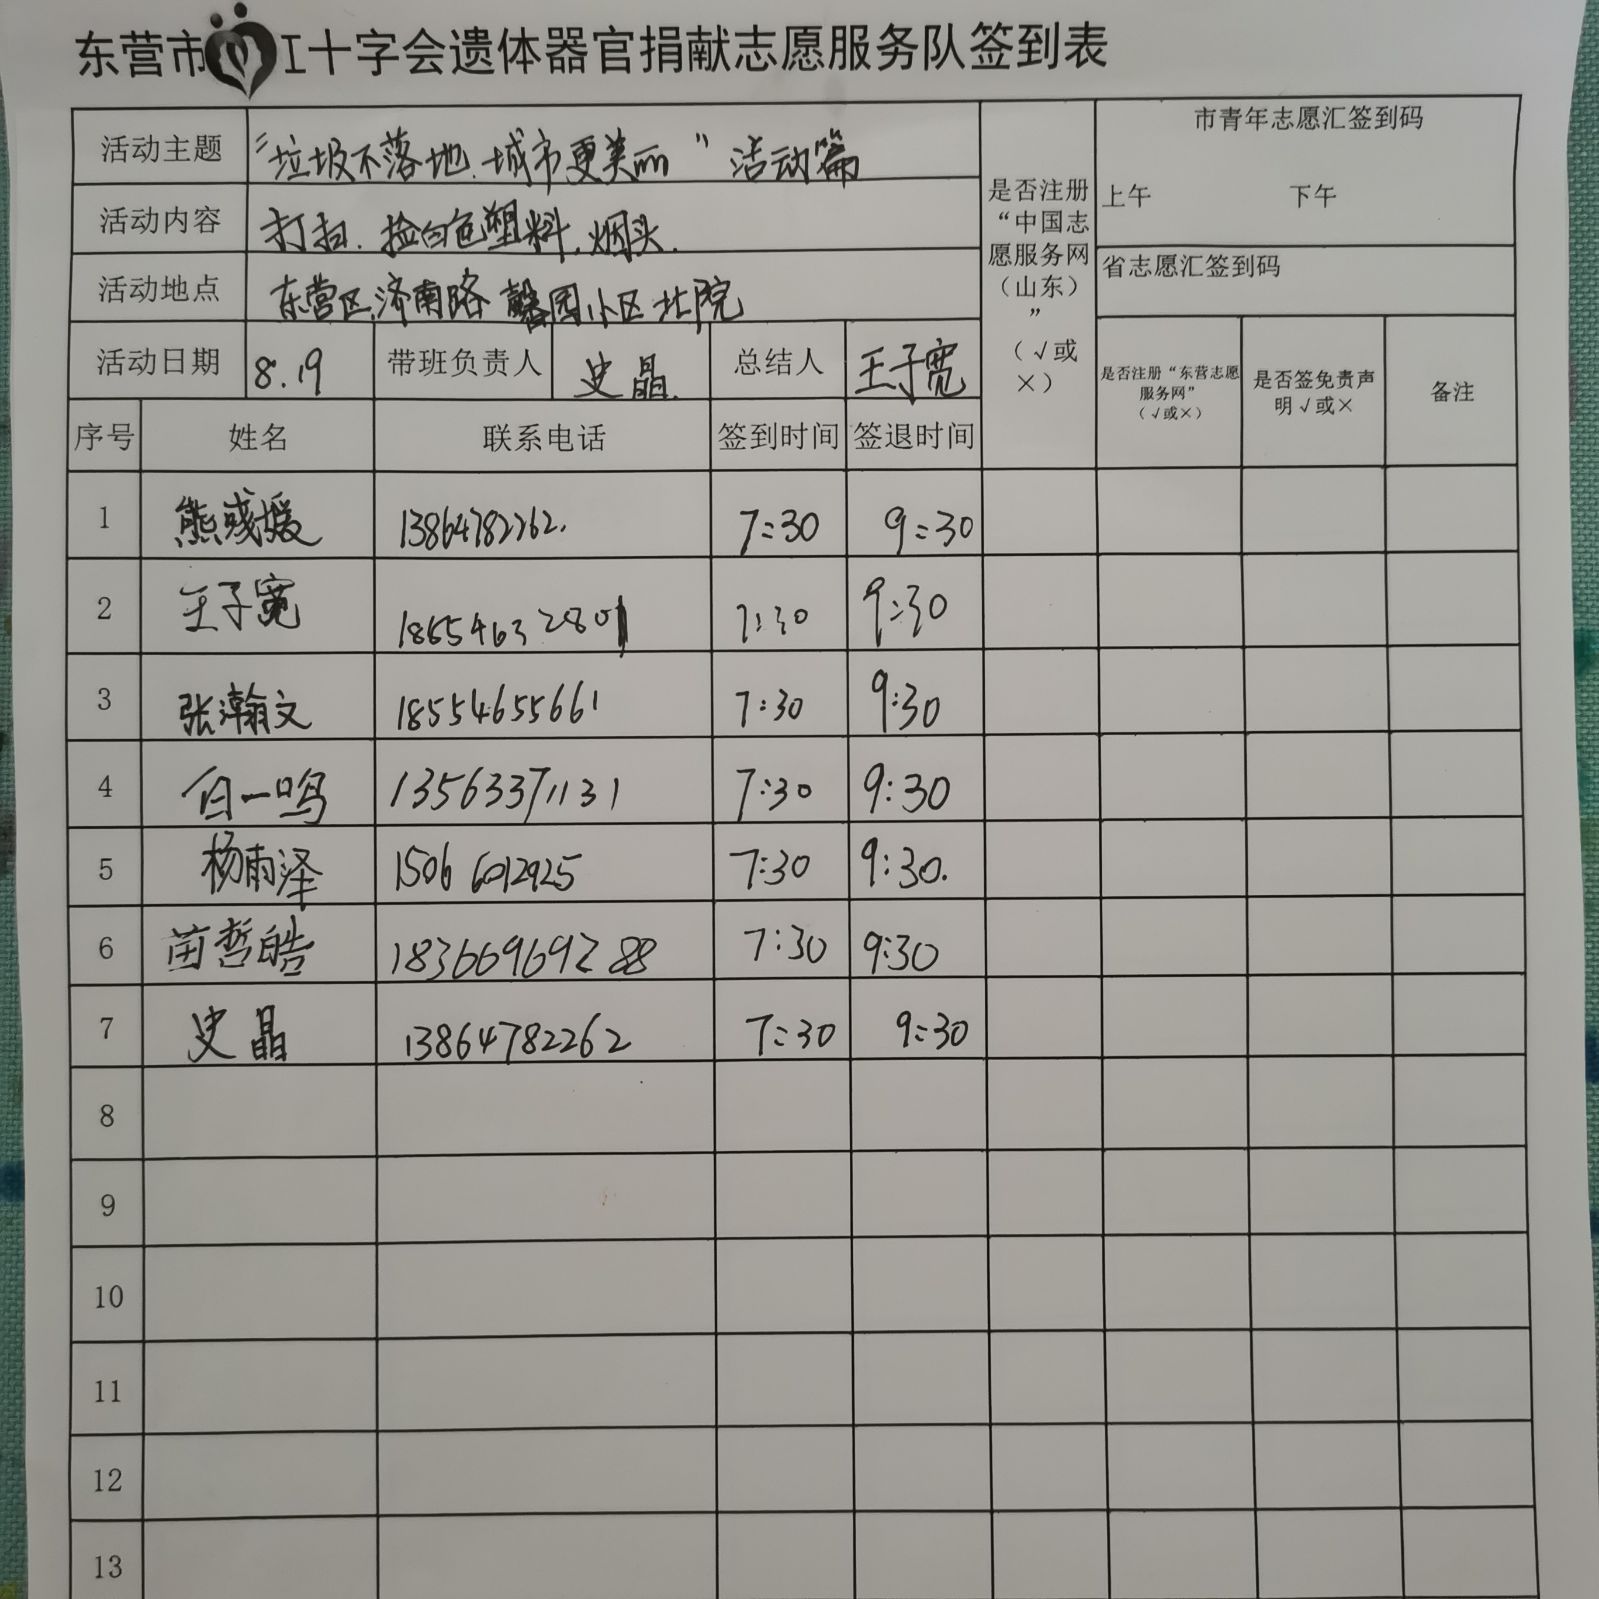 东营市工十字会遗体器官捐献志愿服务队签到表
活动主题 “垃圾不落地.城市更美丽”活动篇
活动内容 打扫.捡白色塑料.烟头.
活动地点 东营区济南路馨园小区北院
活动日期 8.19 带班负责人 史晶. 总结人 王子宽
是否注册
“中国志
愿服务网
(山东)
”
(√或
×)
市青年志愿汇签到码
上午 下午
省志愿汇签到码
是否注册“东营志愿
服务网”
(√或×)
是否签免责声
明√或×
备注
序号 姓名 联系电话 签到时间 签退时间
1 熊彧媛 13864782262. 7:30 9:30
2 王子宽 7:30 9:30
3 张瀚文 18554655661 7:30 9:30
4 白一鸣 13563371131 7:30 9:30
5 杨雨泽 15066012925 7:30 9:30.
6 苗哲皓 18366969288 7:30 9:30
7 史晶 13864782262 7:30 9:30
8
9
10
11
12
13